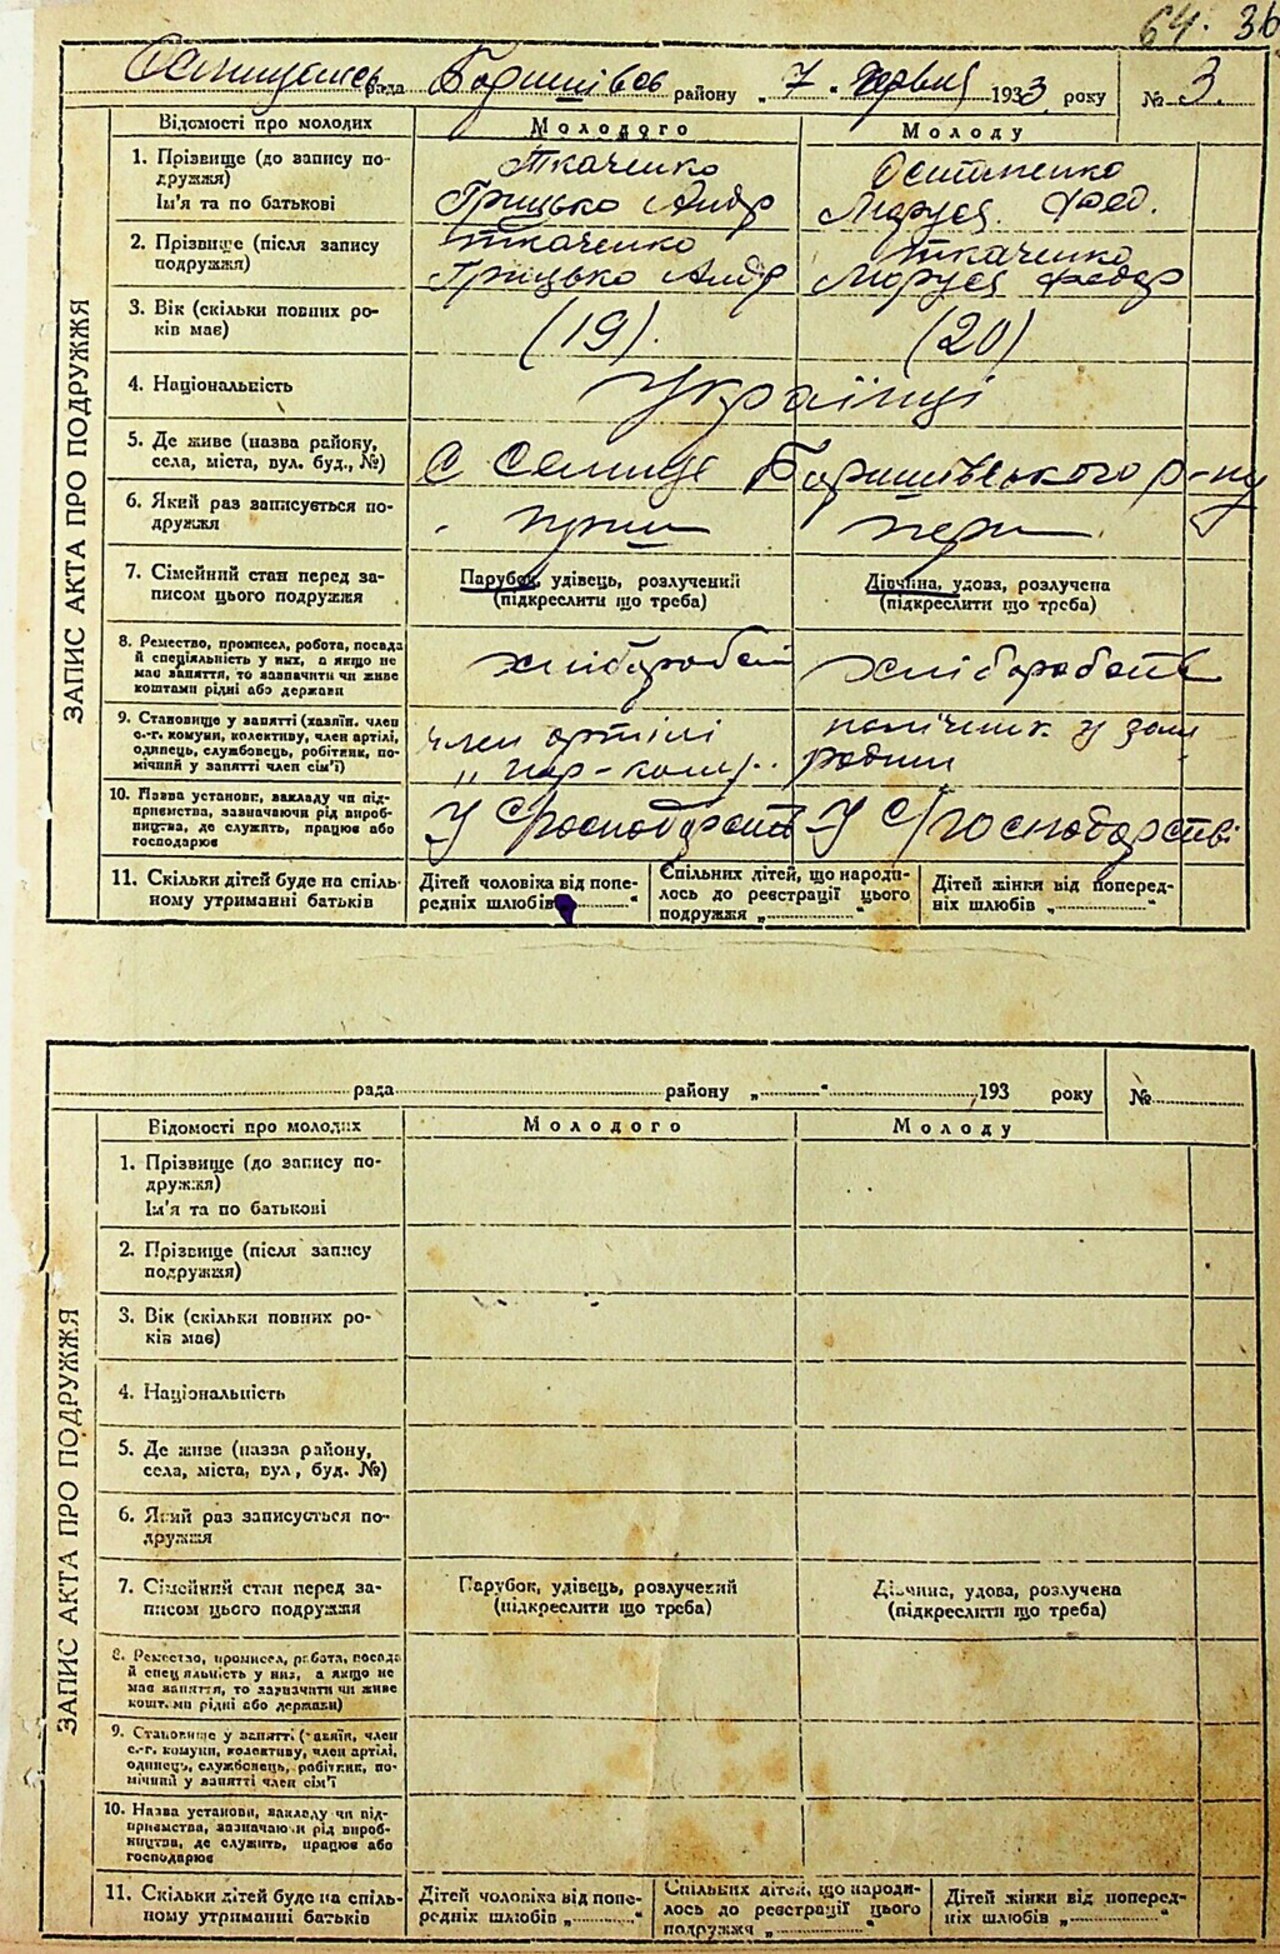 64. 36
Селищансь рада Баришівсь району „ 7 " червня 1933 року № 3.
ЗАПИС АКТА ПРО ПОДРУЖЖЯ
Відомості про молодих Молодого Молоду
1. Прізвище (до запису по-
дружжя)
Ім'я та по батькові
Ткаченко
Грицько Андр
Остапенко
Маруся. Фед.
2. Прізвище (після запису
подружжя)
Ткаченко
Грицько Андр
Ткаченко
Маруся Федор
3. Вік (скільки повних ро-
ків має)
(19). (20)
4. Національність
Українці
5. Де живе (назва району,
села, міста, вул. буд., №)
С Селище Баришівського р-ну
6. Який раз записується по-
дружжя
перш
7. Сімейний стан перед за-
писом цього подружжя
Парубок, удівець, розлучений
(підкреслити що треба)
Дівчина, удова, розлучена
(підкреслити що треба)
8. Ремество, промисел, робота, посада
й спеціяльність у них, а якщо не
має заняття, то зазначити чи живе
коштами рідні або держави
хлібороб хлібороб
9. Становище у занятті (хазяїн. член
с.-г. комуни, колективу, член артілі,
одинець, службовець, робітник, по-
мічний у занятті член сім'ї)
член артілі
помічник у зан
родини
10. Назва установи, закладу чи під-
приємства, зазначаючи рід вироб-
ництва, де служить, працює або
господарює
У С/господарстві У С/господарстві
11. Скільки дітей буде на спіль-
ному утриманні батьків
Дітей чоловіка від попе-
редніх шлюбів „ "
Спільних дітей, що народи-
лось до реєстрації цього
подружжя „ "
Дітей жінки від поперед-
ніх шлюбів „ "
рада району „ " 193 року №
ЗАПИС АКТА ПРО ПОДРУЖЖЯ
Відомості про молодих Молодого Молоду
1. Прізвище (до запису по-
дружжя)
Ім'я та по батькові
2. Прізвище (після запису
подружжя)
3. Вік (скільки повних ро-
ків має)
4. Національність
5. Де живе (назва району,
села, міста, вул, буд. №)
6. Який раз записується по-
дружжя
7. Сімейний стан перед за-
писом цього подружжя
Парубок, удівець, розлучений
(підкреслити що треба)
Дівчина, удова, розлучена
(підкреслити що треба)
8. Ремество, промисел, робота, посада
й спеціяльність у них, а якщо не
має заняття, то зазначити чи живе
коштами рідні або держави)
9. Становище у занятті (хазяїн, член
с.-г. комуни, колективу, член артілі,
одинець, службовець, робітник, по-
мічний у занятті член сім'ї
10. Назва установи, закладу чи під-
приємства, зазначаючи рід вироб-
ництва, де служить, працює або
господарює
11. Скільки дітей буде на спіль-
ному утриманні батьків
Дітей чоловіка від попе-
редніх шлюбів „ "
Спільних дітей, що народи-
лось до реєстрації цього
подружжя „ "
Дітей жінки від поперед-
ніх шлюбів „ "